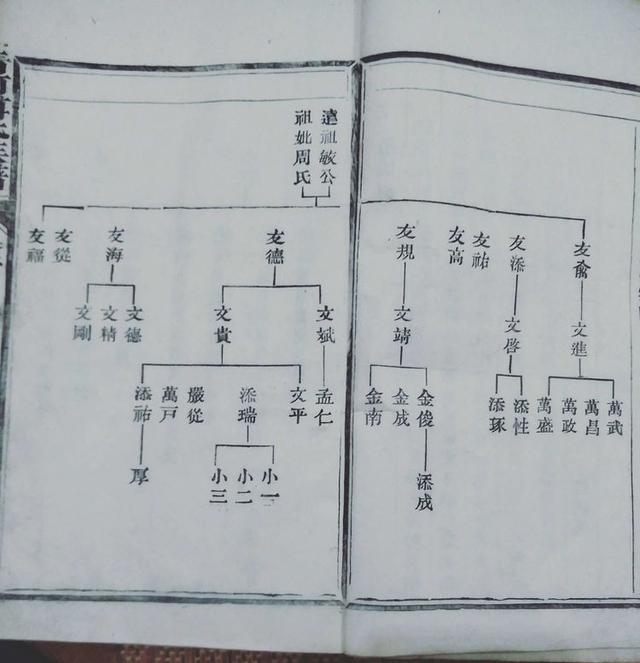 遠祖敏公
祖妣周氏
友兪
友添
友祐
友高
友規
友德
友海
友從
友福
文進
文啓
文靖
文斌
文貴
文德
文精
文剛
萬武
萬昌
萬政
萬盛
添性
添琢
金俊
金成
金南
孟仁
文平
添瑞
嚴從
萬戸
添祐
添成
小一
小二
小三
厚